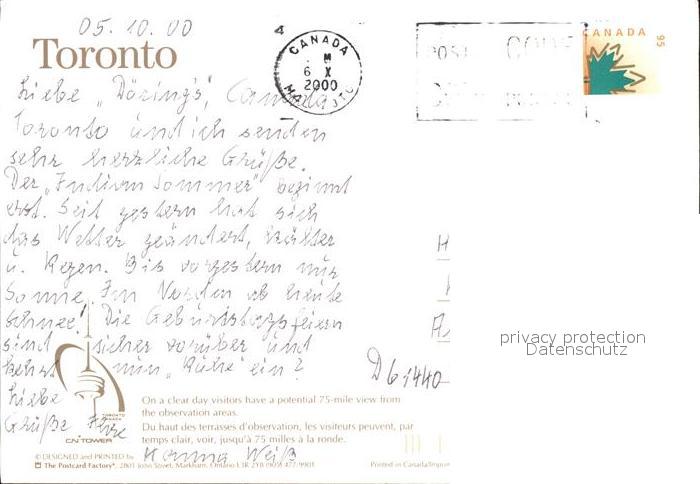 05.10.00
Toronto
Liebe „Döring's", Canada,
Toronto und ich senden
sehr herzliche Grüße.
Der „Indian Sommer" beginnt
erst. Seit gestern hat sich
das Wetter geändert, kälter
u. Regen. Bis vorgestern nur
Sonne. Im Norden ab heute
Schnee! Die Geburtstagsfeiern
sind sicher vorüber und
kehrt nun „Ruhe" ein?
Liebe
Grüße Ihre
Hanna Weiß
4
CANADA
M
6 X
2000
POST CODE
CANADA
95
H
A
D 61440
privacy protection
Datenschutz
TORONTO
CN TOWER
On a clear day visitors have a potential 75-mile view from
the observation areas.
Du haut des terrasses d'observation, les visiteurs peuvent, par
temps clair, voir, jusqu'à 75 milles à la ronde.
© DESIGNED and PRINTED by
The Postcard Factory®, 2801 John Street, Markham, Ontario L3R 2Y8 (905) 477-9901
Printed in Canada/Imprim